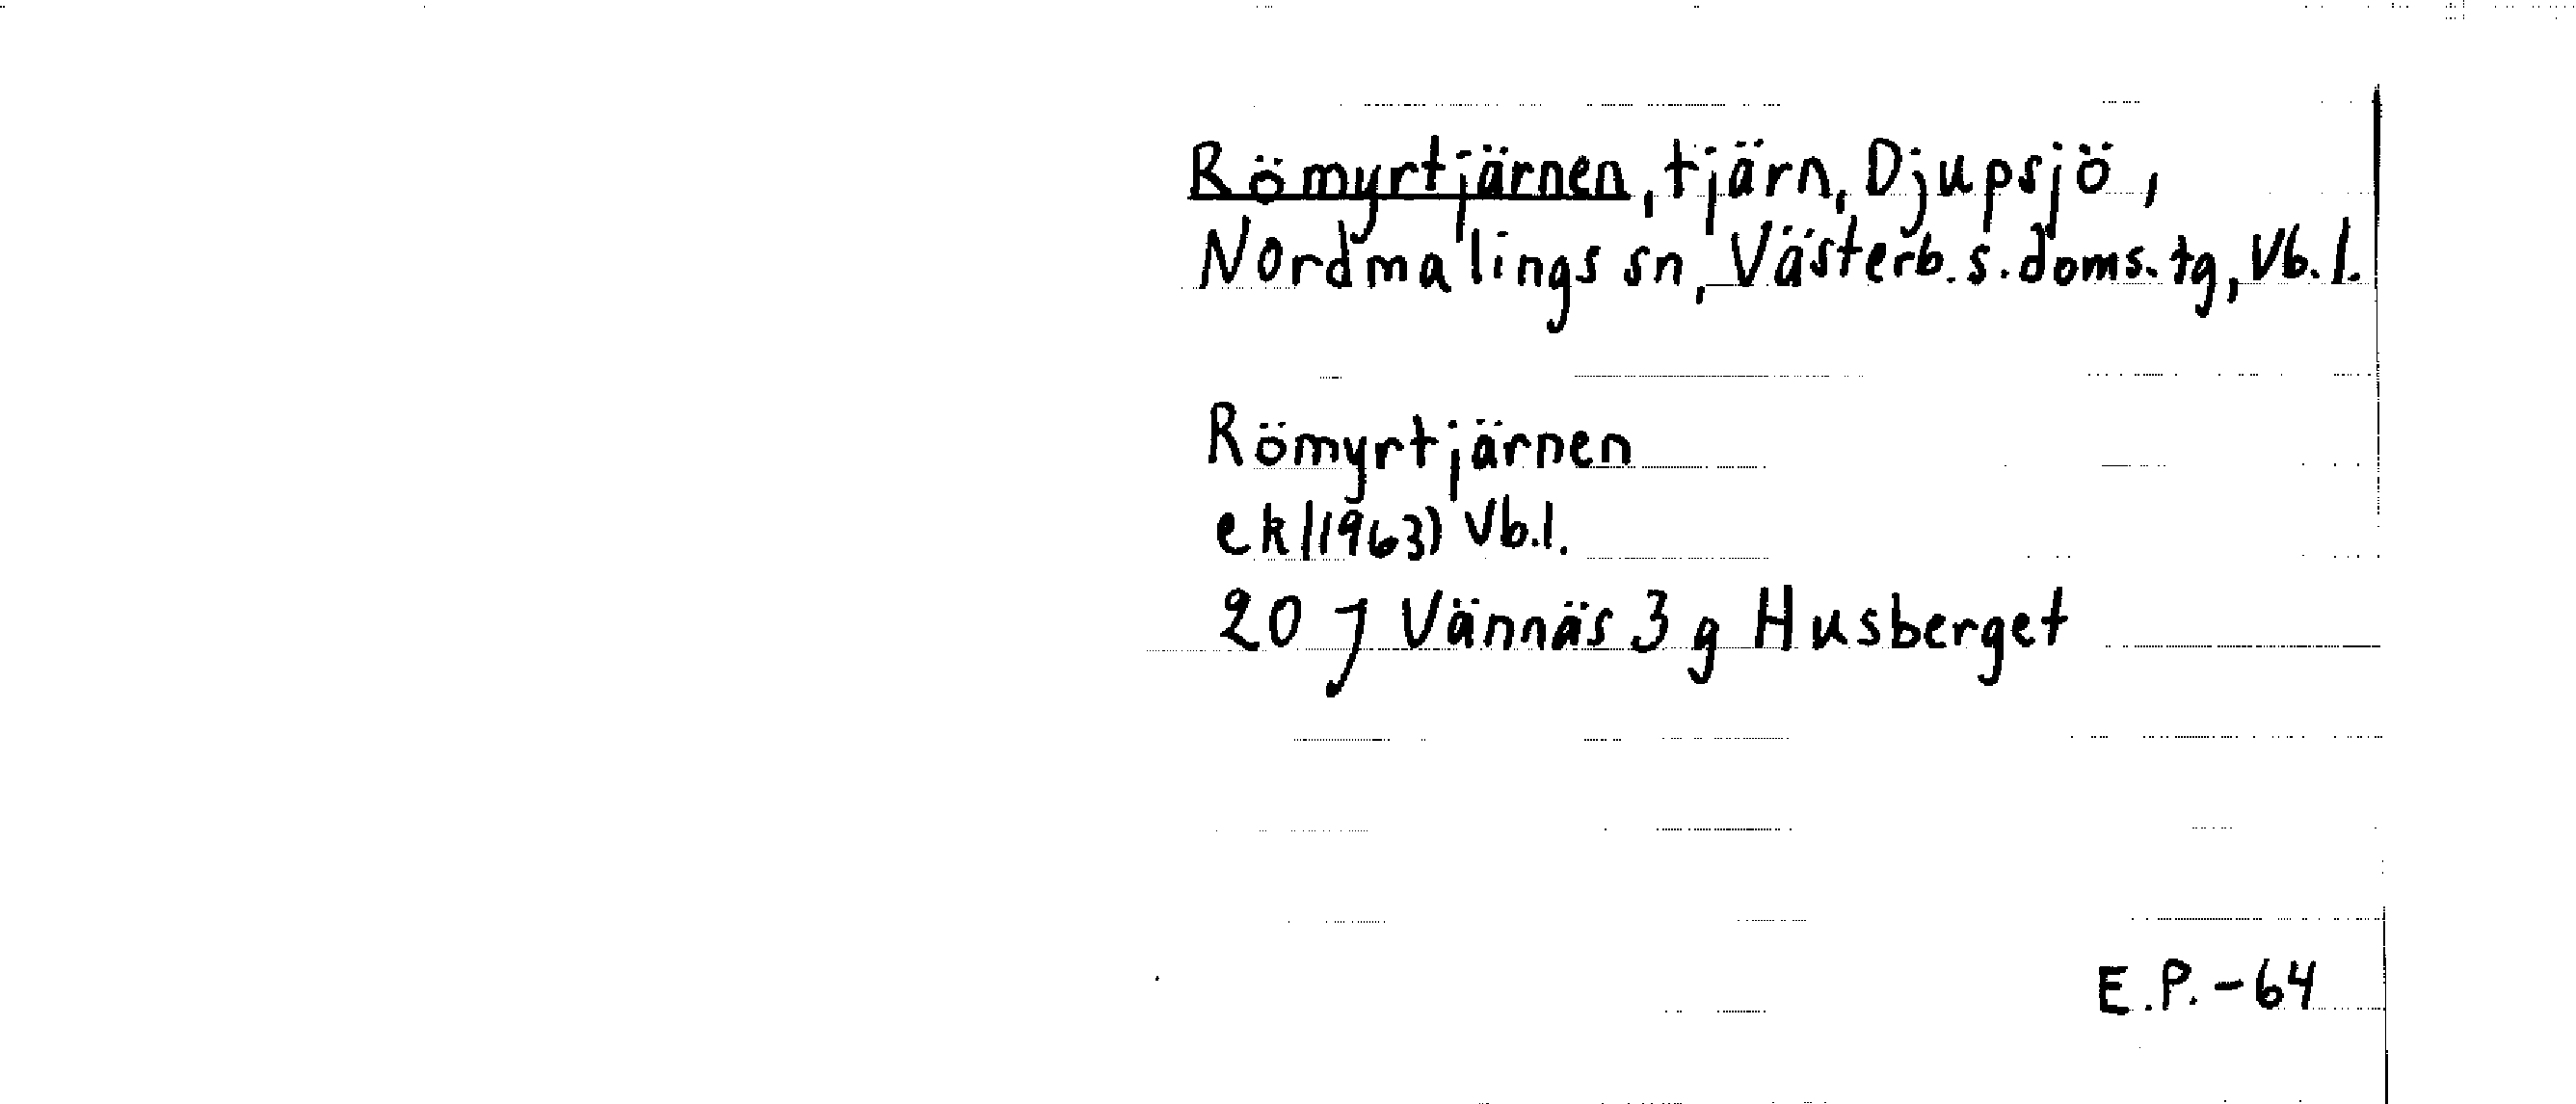 Römyrtjärnen, tjärn, Djupsjö,
Nordmalings sn, Västerb. s. doms. tg, Vb. l.
Römyrtjärnen
ek (1963) Vb.l.
20 J Vännäs 3 g Husberget
E.P. - 64